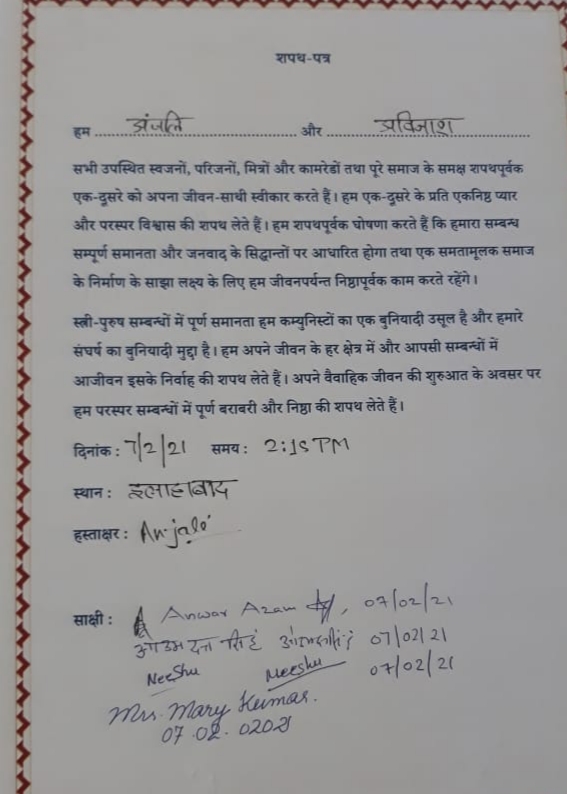 शपथ-पत्र
हम अंजलि और अविनाश
सभी उपस्थित स्वजनों, परिजनों, मित्रों और कामरेडों तथा पूरे समाज के समक्ष शपथपूर्वक
एक-दूसरे को अपना जीवन-साथी स्वीकार करते हैं। हम एक-दूसरे के प्रति एकनिष्ठ प्यार
और परस्पर विश्वास की शपथ लेते हैं। हम शपथपूर्वक घोषणा करते हैं कि हमारा सम्बन्ध
सम्पूर्ण समानता और जनवाद के सिद्धान्तों पर आधारित होगा तथा एक समतामूलक समाज
के निर्माण के साझा लक्ष्य के लिए हम जीवनपर्यन्त निष्ठापूर्वक काम करते रहेंगे।
स्त्री-पुरुष सम्बन्धों में पूर्ण समानता हम कम्युनिस्टों का एक बुनियादी उसूल है और हमारे
संघर्ष का बुनियादी मुद्दा है। हम अपने जीवन के हर क्षेत्र में और आपसी सम्बन्धों में
आजीवन इसके निर्वाह की शपथ लेते हैं। अपने वैवाहिक जीवन की शुरुआत के अवसर पर
हम परस्पर सम्बन्धों में पूर्ण बराबरी और निष्ठा की शपथ लेते हैं।
दिनांक : 7/2/21 समय : 2:15 PM
स्थान : इलाहाबाद
हस्ताक्षर : Anjali
साक्षी : Anwar Azam, 07/02/21
सिंह 07/02/21
Neeshu Neeshu 07/02/21
Mrs. Mary Kumar.
07.02.0202